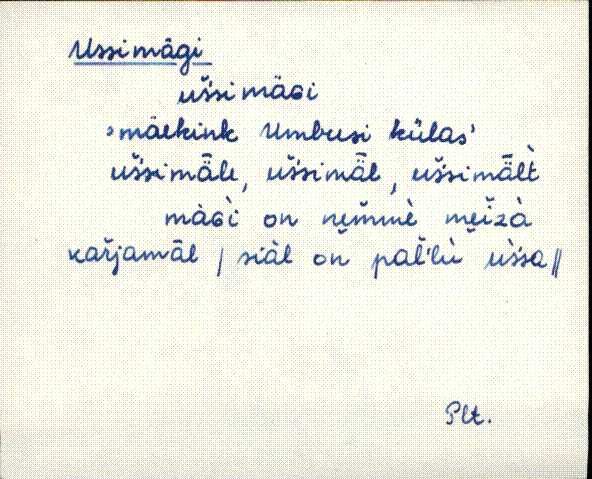 Ussimägi
uššimäɢi
mäekink Umbusi külas'
uššimǟle, uššimǟl, uššimǟl̀t
mäɢì on nemmè meìzà
kařjamāl / siàl on pal'lù ušsa //
Plt.